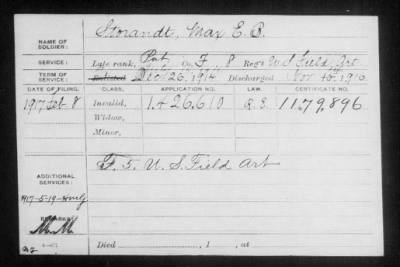 NAME OF SOLDIER: Storandt, Max E. B.
SERVICE: Late rank, Pvt Co. F, 8 Reg't U.S. Field Art
TERM OF SERVICE: Enlisted Dec 26, 1914 Discharged Nov 10, 1916
DATE OF FILING. CLASS. APPLICATION NO. LAW. CERTIFICATE NO.
1917 Feb 8 Invalid, 1,426,610 1179,896
Widow,
Minor,
ADDITIONAL SERVICES: F. 5. U. S. Field Art
1917-5-19
REMARKS:
M.M
Died , 1 , at